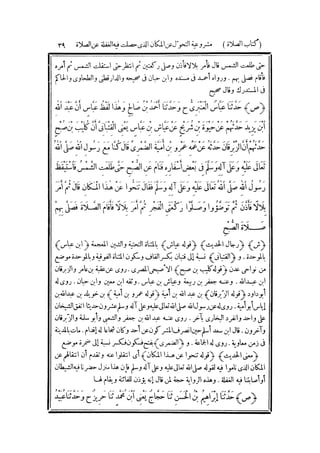 (كتاب الصلاة) مشروعية التحول عن المكان الذى حصلت فيه الغفلة عن الصلاة ٣٩
حتى طلعت الشمس قال فأمر بلالا فأذن وصلى ركعتين ثم انتظر حتى استقلت الشمس ثم أمره
فأقام فصلى بهم . ورواه أحمد فى مسنده وابن حبان فى صحيحه والدارقطنى والطحاوى والحاكم
فى المستدرك وقال صحيح
(ص) حَدَّثَنَا عَبَّاسٌ الْعَنْبَرِىُّ ح وَحَدَّثَنَا أَحْمَدُ بْنُ صَالِحٍ وَهَذَا لَفْظُ عَبَّاسٍ أَنَّ عَبْدَ اللهِ
ابْنَ يَزِيدَ حَدَّثَهُمْ عَنْ حَيْوَةَ بْنِ شُرَيْحٍ عَنْ عَيَّاشِ بْنِ عَبَّاسٍ يَعْنِى الْقِتْبَانِىَّ أَنَّ كُلَيْبَ بْنَ صُبْحٍ
حَدَّثَهُمْ أَنَّ الزِّبْرِقَانَ حَدَّثَهُ عَنْ عَمِّهِ عَمْرِو بْنِ أُمَيَّةَ الضَّمْرِىِّ قَالَ كُنَّا مَعَ رَسُولِ اللهِ صَلَّى اللهُ
تَعَالَى عَلَيْهِ وَعَلَى آلِهِ وَسَلَّمَ فِى بَعْضِ أَسْفَارِهِ فَنَامَ عَنِ الصُّبْحِ حَتَّى طَلَعَتِ الشَّمْسُ فَاسْتَيْقَظَ
رَسُولُ اللهِ صَلَّى اللهُ تَعَالَى عَلَيْهِ وَعَلَى آلِهِ وَسَلَّمَ فَقَالَ تَنَحَّوْا عَنْ هَذَا الْمَكَانِ قَالَ ثُمَّ أَمَرَ
بِلَالًا فَأَذَّنَ ثُمَّ تَوَضَّؤُوا وَصَلَّوْا رَكْعَتَىِ الْفَجْرِ ثُمَّ أَمَرَ بِلَالًا فَأَقَامَ الصَّلَاةَ فَصَلَّى بِهِمْ
صَلَاةَ الصُّبْحِ
(ش) (رجال الحديث) (قوله عياش) بالمثناة التحتية والشين المعجمة (ابن عباس)
بالموحدة . و (القتبانى) نسبة إلى قتبان بكسر القاف وسكون المثناة الفوقية وبالموحدة موضع
من نواحى عدن (قوله كليب بن صبح) الأصبحى المصرى . روى عن عقبة بن عامر والزبرقان
ابن عبدالله . وعنه جعفر بن ربيعة وعياش بن عباس . وثقه ابن معين وابن حبان . روى له
أبوداود (قوله الزبرقان) بن عبد الله بن أمية (قوله عمرو بن أمية) بن خويلد بن عبدالله بن
إياس أبى أمية . روى له عن رسول الله صلى الله تعالى عليه وعلى آله وسلم عشرون حديثا اتفق الشيخان
على واحد وانفرد البخارى بآخر . روى عنه عبد الله بن جعفر والشعبى وأبو سلمة والزبرقان
وآخرون . قال ابن سعد أسلم حين انصرف المشركون عن أحد وكان شجاعا له إقدام . مات بالمدينة
فى زمن معاوية . روى له الجماعة . و (الضمرى) بفتح فسكون فكسر نسبة إلى ضمرة موضع
(معنى الحديث) (قوله تنحوا عن هذا المكان) أى انتقلوا عنه وتقدم أن انتقالهم عن
المكان الذى ناموا فيه لقوله صلى الله تعالى عليه وعلى آله وسلم فإن هذا منزل حضرنا فيه الشيطان
أو أصابتنا فيه الغفلة . وهذه الرواية حجة لمن قال إنه يؤذن للفائتة ويقام لها
(ص) حَدَّثَنَا إِبْرَاهِيمُ بْنُ الْحَسَنِ ثَنَا حَجَّاجٌ يَعْنِى ابْنَ مُحَمَّدٍ ثَنَا حَرِيزٌ ح وَحَدَّثَنَا عُبَيْدُ